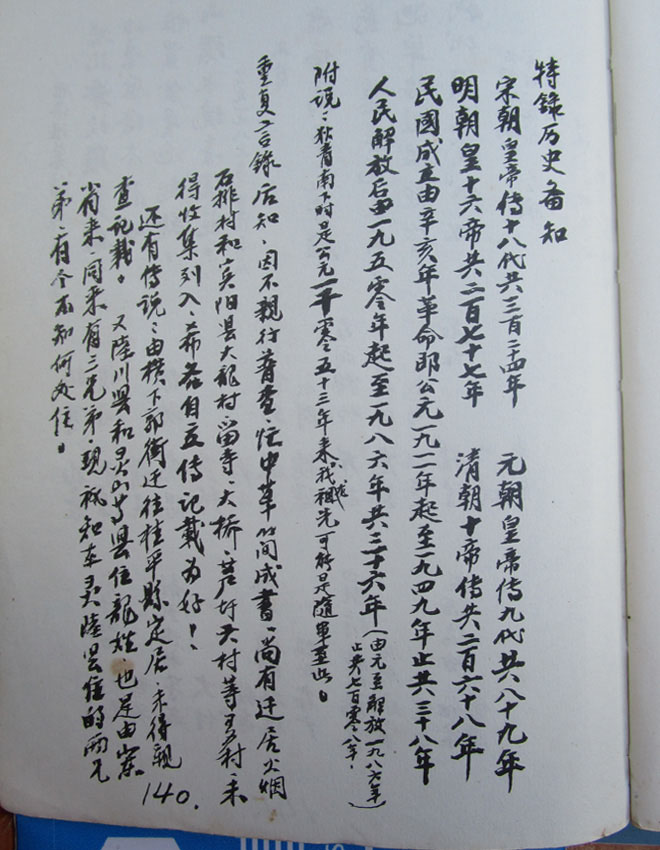 特錄历史备知
宋朝皇帝传十八代共三百二十四年　元朝皇帝传九代共八十九年
明朝皇十六帝共二百七十七年　清朝十帝传共二百六十八年
民國成立由辛亥年革命即公元一九一一年起至一九四九年止共三十八年
人民解放后由一九五零年起至一九八六年共三十六年（由元至解放一九八六年止共七百零八年）
附说：狄青南下时是公元一千零五十三年来，我祖先可能是随軍至此。
重复言錄后知，因不親行普查，忙中草筆简成書，尚有迁居火烟
石排村和宾阳县大龍村、留寺、大桥、芦圩六村等多村，未
得收集列入，希各自立传记载为好！
还有传说：由横下郭街迁往桂平縣定居，未得親
查记载。又陸川县和灵山等县住龍姓，也是由山東
省来，同来有三兄弟，現祗知在灵陸县住的两兄
弟，有个不知何处住。
140.